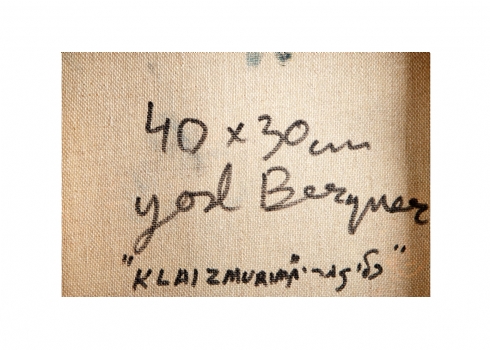 40 x 30 cm
yosl Bergner
"KLAIZMURIM"